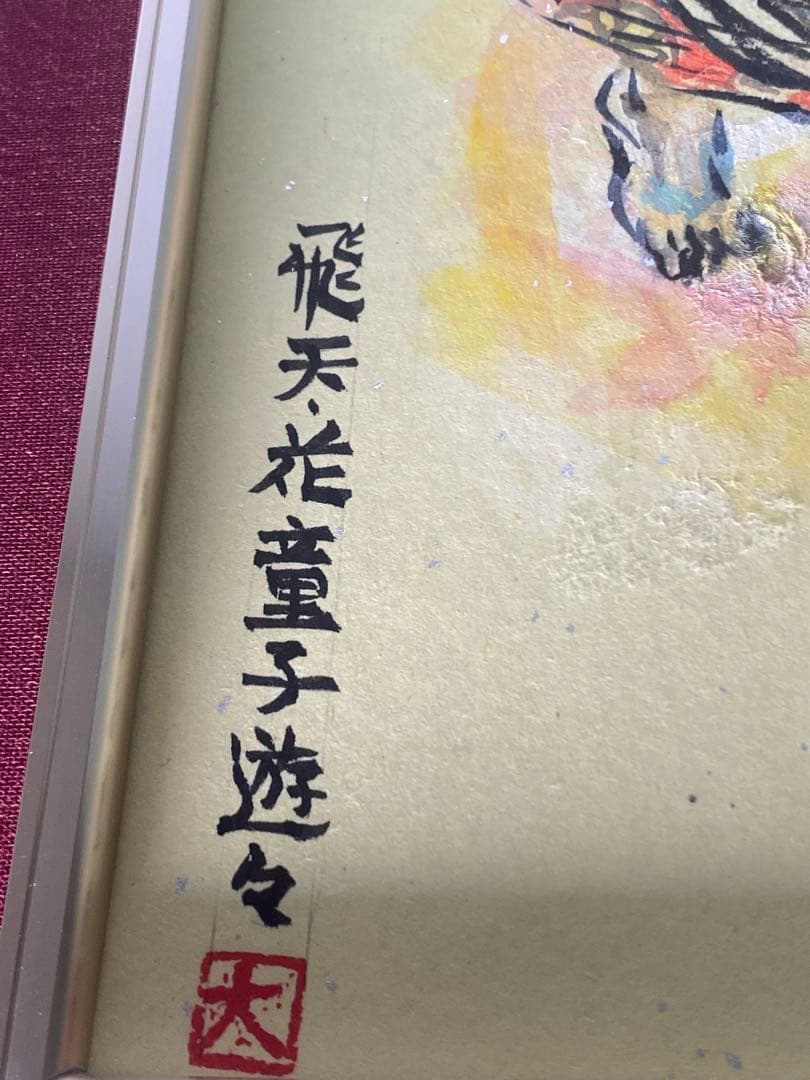 飛天・花童子遊々
大